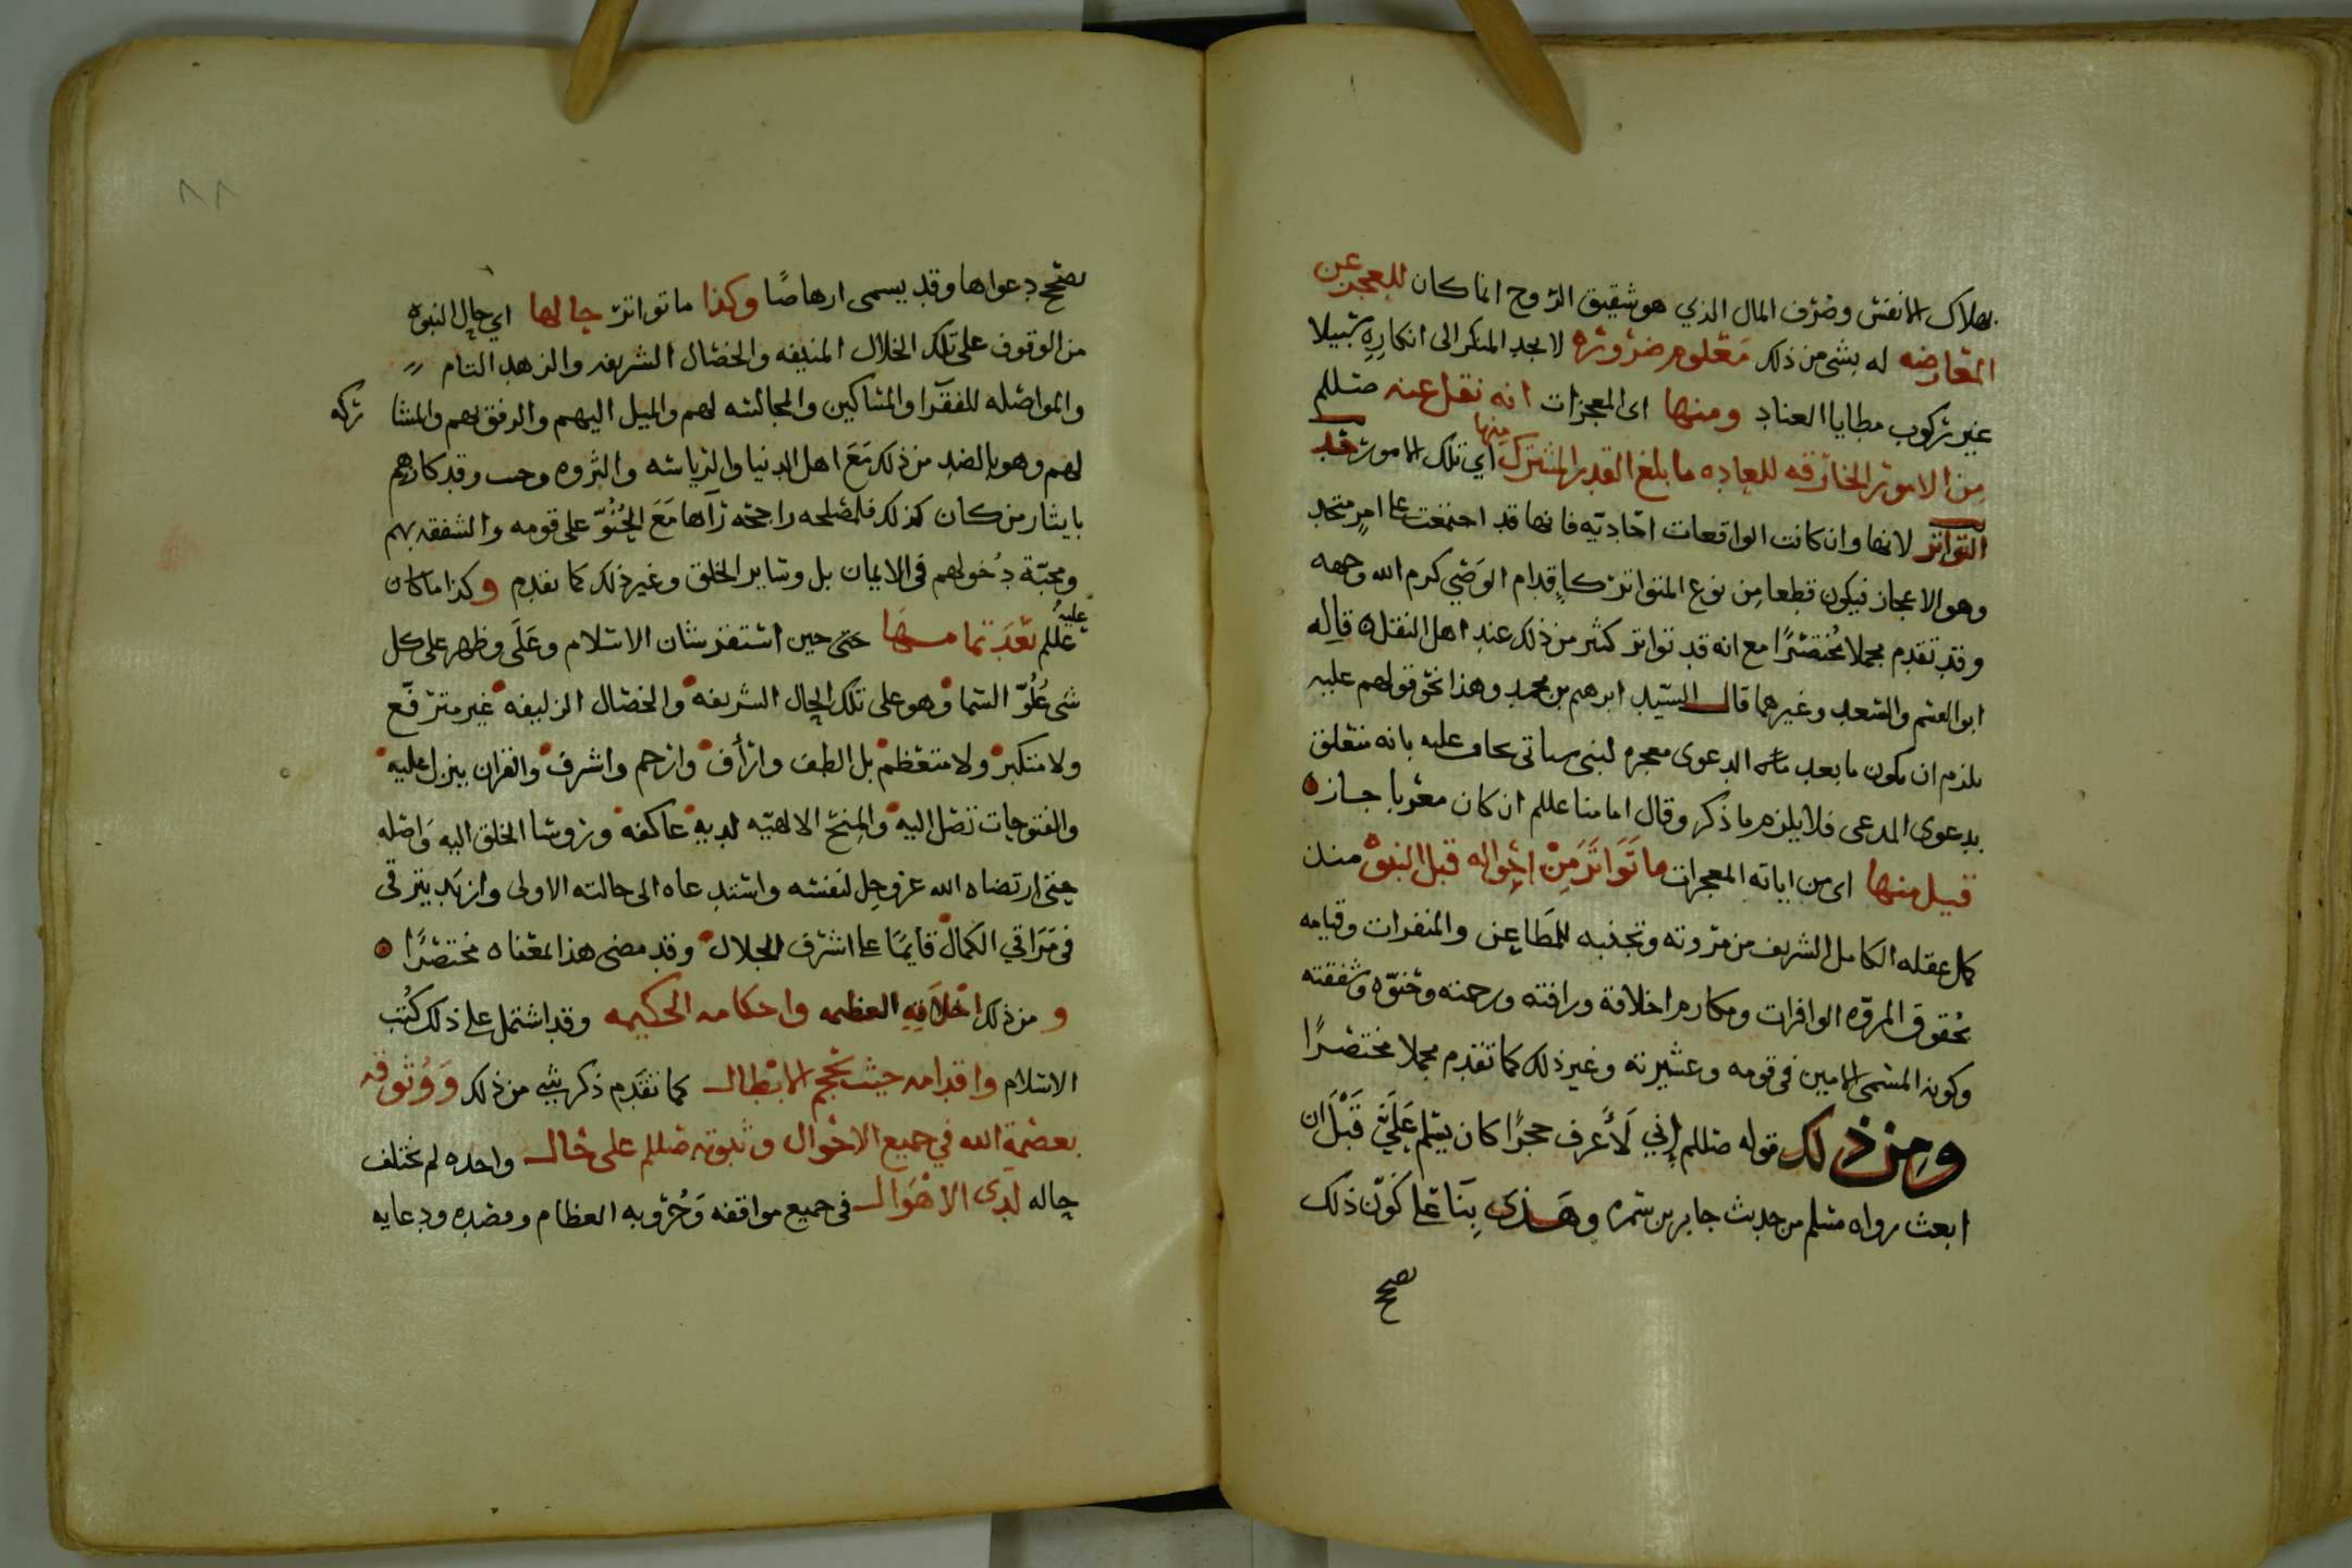 بهلاك الانفس وصرف المال الذي هو شقيق الروح انما كان للعجز عن
المعارضه له بشي من ذلك معلوم ضروره لا يجد المنكر الى انكاره سبيلا
غير ركوب مطايا العناد ومنها اى المعجزات انه نقل عنه صللم
من الامور الخارقه للعاده ما بلغ القدر المشترك منها اي تلك الامور حد
التواتر لانها وان كانت الواقعات احاديه فانها قد اجتمعت على امر متحد
وهو الاعجاز فيكون قطعا من نوع المتواتر كاقدام الوصي كرم الله وجهه
وقد تقدم مجملا مختصرا مع انه قد تواتر كثير من ذلك عند اهل النقل ه قاله
ابوالقسم والسعد وغيرهما قال السيد ابرهيم بن محمد وهذا نحو قولهم عليه
يلزم ان يكون ما بعد الدعوى معجزه لنبي سياتى يجاب عليه بانه متعلق
بدعوى المدعى فلا يلزم ما ذكر وقال امامنا عللم ان كان معرفا جاز ه
قيل منها اى من اياته المعجزات ما تَوَاتَرَ مِنْ احواله قبل النبوه منذ
كمل عقله الكامل الشريف من مروته وتجنبه للمَطَاعِن والمنفرات وقيامه
بحُقوق المروّه الوافرات ومكارم اخلاقه ورافته ورحمته وحنوّه وشفقته
وكونه المسمى الامين فى قومه وعشيرته وغير ذلك كما تقدم مجملا مختصرًا
ومن ذلك قوله صللم إني لَأعرف حجرًا كان يسلم عَلَيَّ قَبْلَ ان
ابعث رواه مسلم من حديث جابر بن سمره وهذى بِنَا على كَوْن ذلك
يصح
٨٨
يصح دعواها وقد يسمى ارهاصًا وكذا ما تواتر حالها اي حال النبوه
من الوقوف على تلك الخلال المنيفه والخصال الشريفه والزهد التام
والمواصله للفقرا والمساكين والمجالسه لهم والميل اليهم والرفق بهم والمشا ركه
لهم وهو بالضد من ذلك مَعَ اهل الدنيا والرياسه والثروه وقد كارهم
بايثار من كان كذلك فلمصلحه راجحه رآها مَعَ الحُنُوّ على قومه والشفقه بهم
ومحبّة دُخولهم فى الايمان بل وساير الخلق وغير ذلك كما تقدم وكذا ما كان عليه
عللم بَعْدَ تمامها حتى حين استقر شان الاسلام وعَلَى وظهر على كل
شى عُلُوّ السما وهو على تلك الحال الشريفه والخصال الزليفه غير مترفع
ولا متكبر ولا متعظم بل الطف وارأف وارحم واشرف والقران ينزل عليه
والفتوحات تصل اليه والمِنَح الالهيّه لديه عاكفه وروسا الخلق اليه وَاصله
حتى ارتضاه الله عز وجل لنفسه واستدعاه الى حالته الاولى وازيَد يترقى
فى مَرَاقي الكمال قايمًا على اشرف الخلال وقد مضى هذا معناه مختصرًا ه
و من ذلك اخلاقه العظيمه واحكامه الحكيمه وقد اشتمل على ذلك كُتب
الاسلام واقدامه حيث تحجم الابطال كما تقدم ذكر شي من ذلك وَوُثوقه
بعصمة الله في جميع الاحوال وثبوته صللم على حال واحده لم تختلف
حاله لدى الاهْوَال فى جميع مواقفه وَحُروبه العظام ودعايه